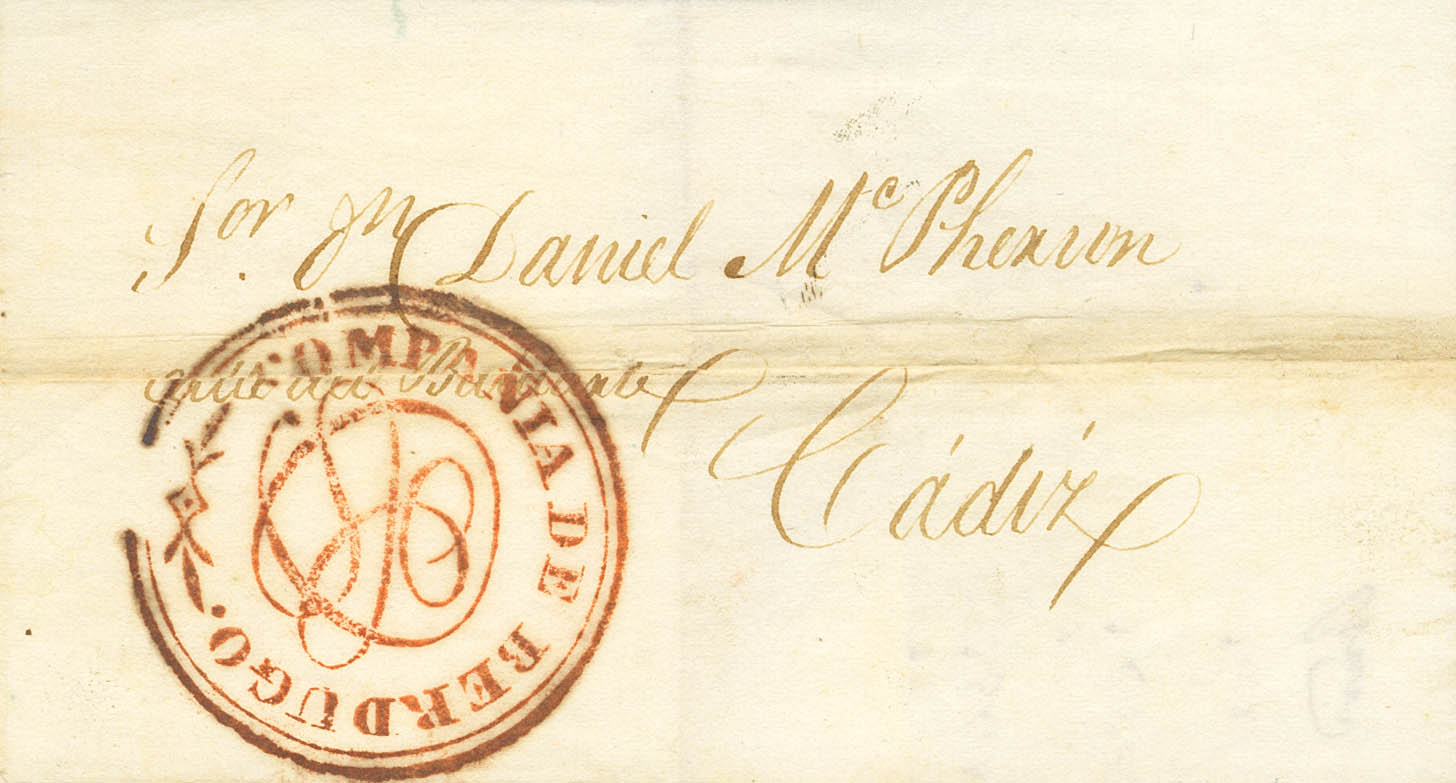 Sor. Dn Daniel McPherson
calle del
Cádiz
COMPANIA DE BERDUGO.